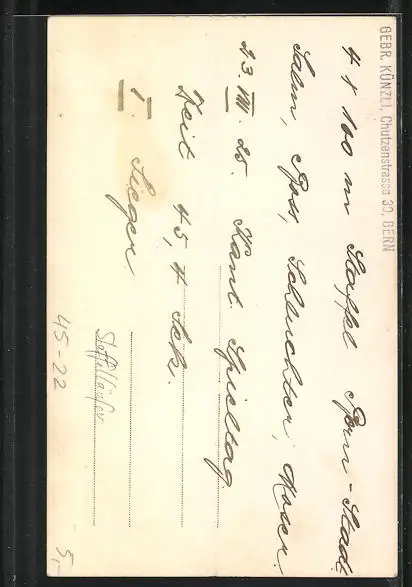 GEBR. KÜNZLI, Chutzenstrasse 30, BERN
4 x 100 m Staffel Bern-Stadt
Salm, Ross, Schluchter, Moser.
23. VIII. 25. Kant. Spieltag.
Zeit 45,4 Sek.
I. Sieger
Staffelläufer
45-22
5,-